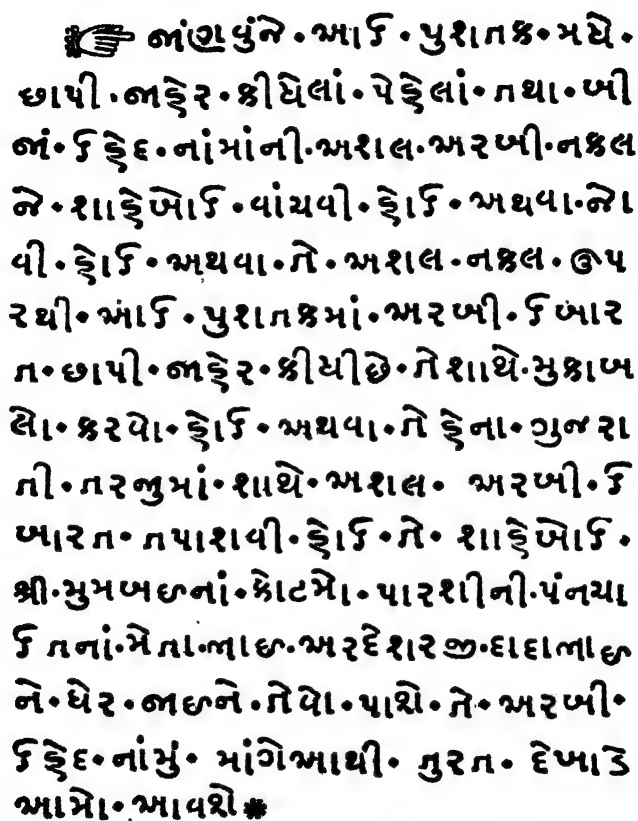 ☞ જાંણવુંને • આઈ • પુશતક • મધે •
છાપી • જાહેર • કીધેલાં • પેહેલાં • તથા • બી
જાં • ઈહેદ • નાંમાંની • અશલ • અરબી • નકલ
જે • શાહેબોઈ • વાંચવી • હોઈ • અથવા • જો
વી • હોઈ • અથવા • તે • અશલ • નકલ • ઊપ
રથી • આંઈ • પુશતકમાં • અરબી • ઈબાર
ત • છાપી • જાહેર • કીધીછે • તેશાથે • મુકાબ
લો • કરવો • હોઈ • અથવા • તે હેના • ગુજરા
તી • તરજુમાં • શાથે • અશલ • અરબી • ઈ
બારત • તપાશવી • હોઈ • તે • શાહેબોઈ •
શ્રી • મુમબઇનાં • કોટમો • પારશીની • પંનચા
ઈતનાં • મેતા • ભાઇ • અરદેશરજી • દાદાભાઇ
ને • ઘેર • જાઇને • તેવો • પાશે • તે • અરબી •
ઈહેદ • નાંમું • માંગેઆથી • તુરત • દેખાડે
આમો • આવશે *